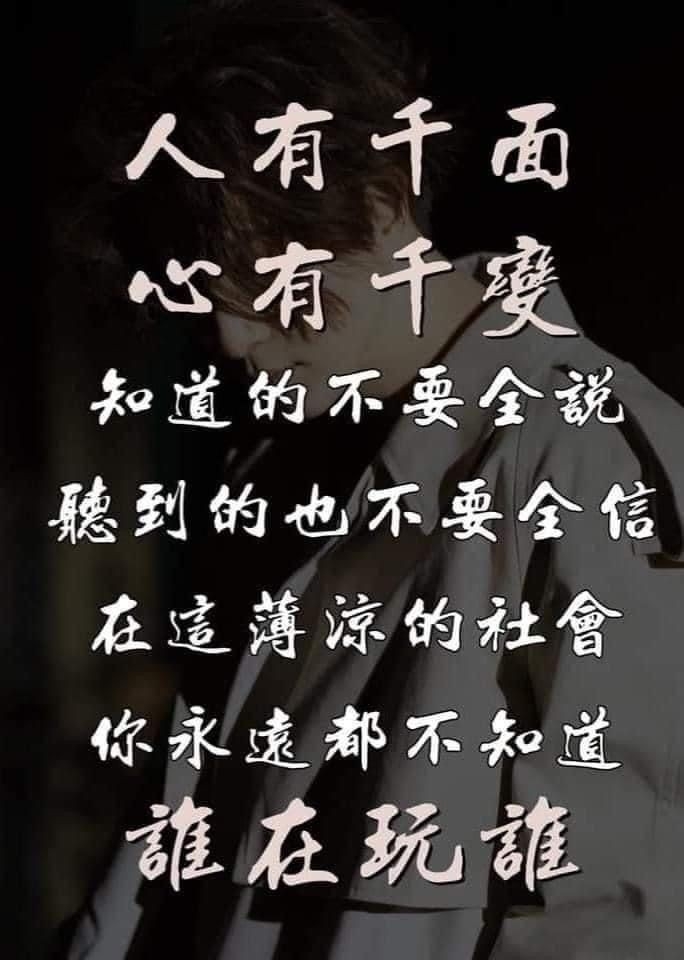 人有千面
心有千變
知道的不要全說
聽到的也不要全信
在這薄涼的社會
你永遠都不知道
誰在玩誰